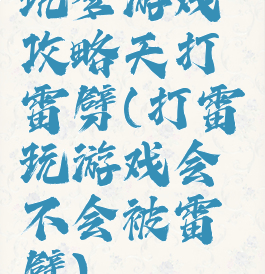 玩梦游戏
攻略天打
雷劈(打雷
玩游戏会
不会被雷
劈)